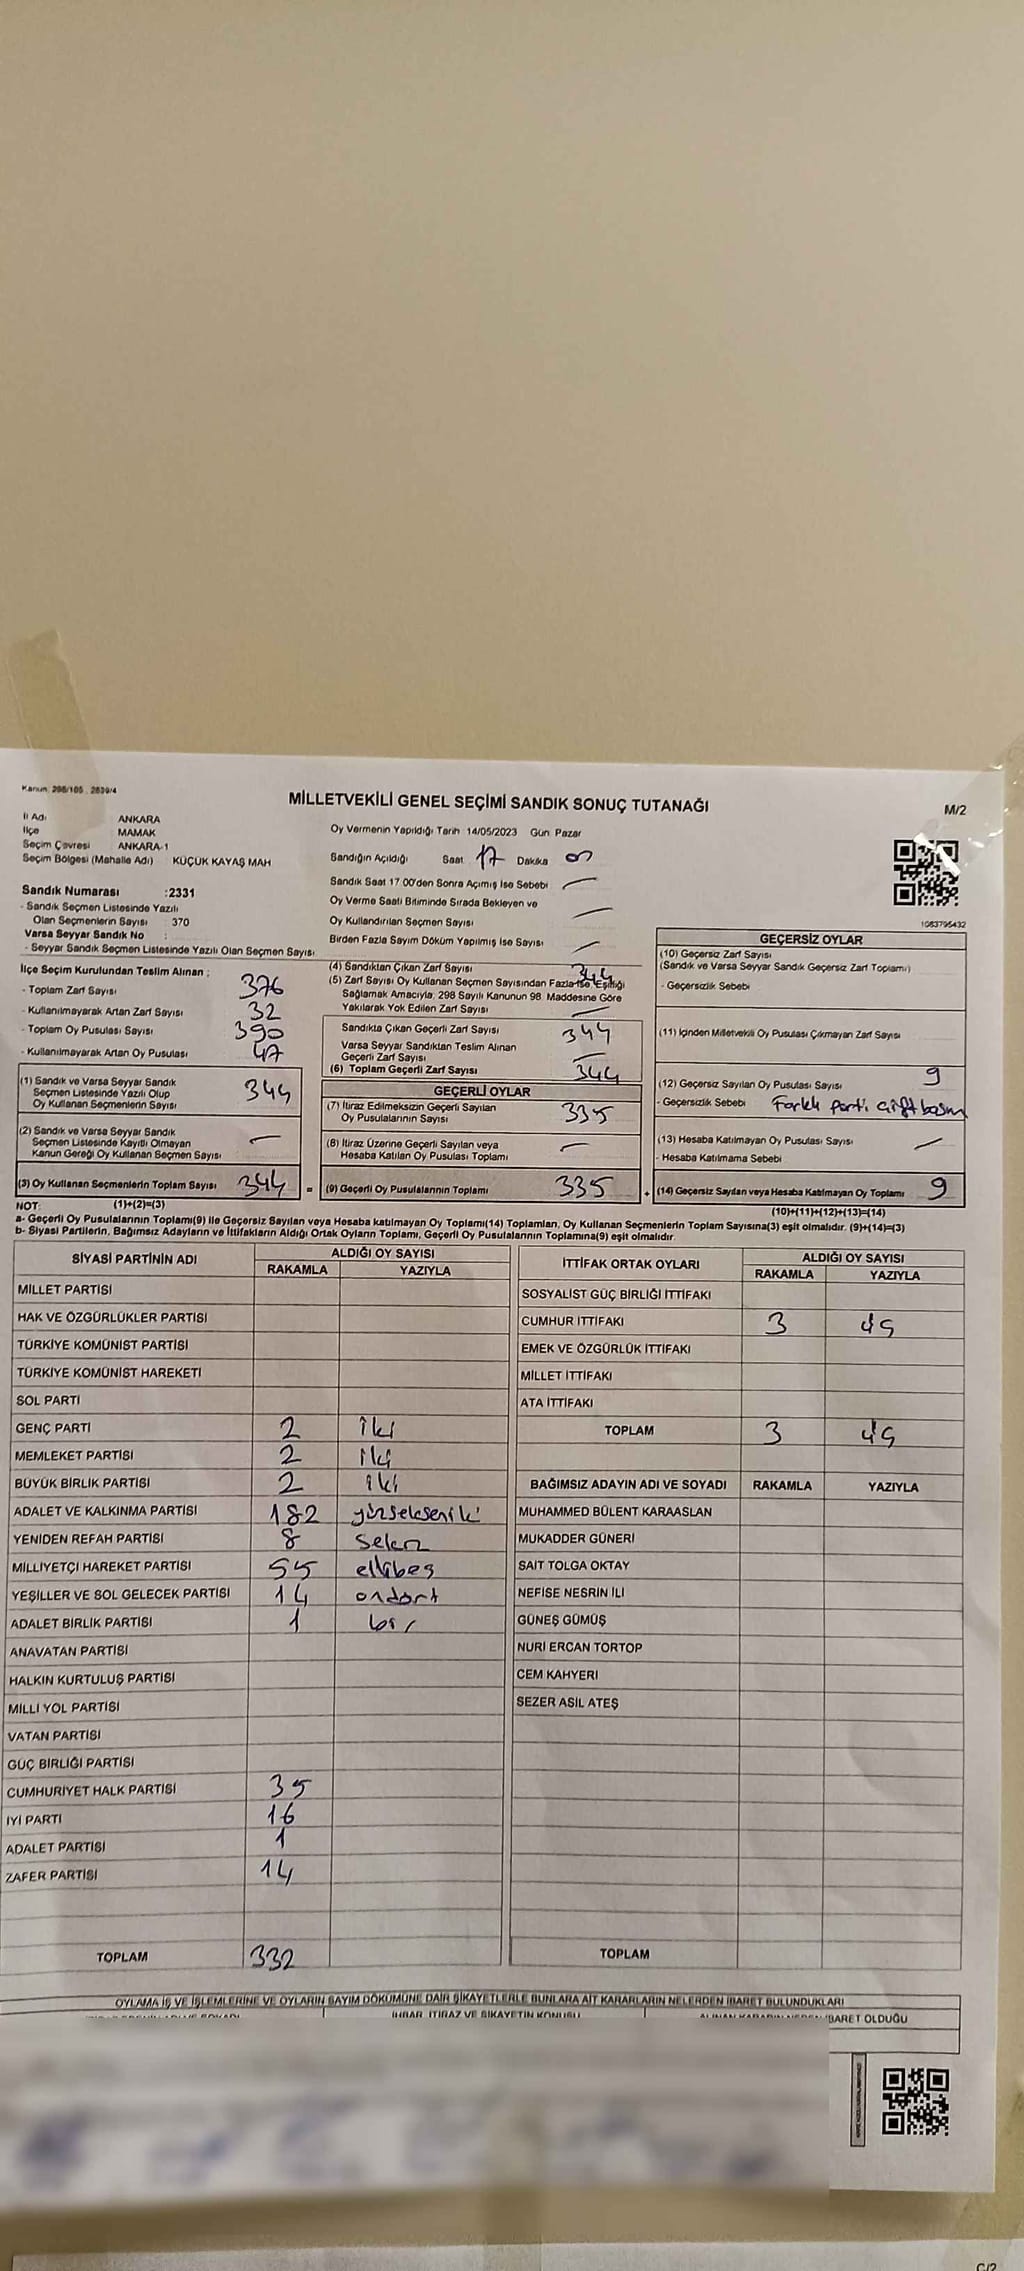 Kanun: 298/105, 2839/4
MİLLETVEKİLİ GENEL SEÇİMİ SANDIK SONUÇ TUTANAĞI
M/2
İl Adı ANKARA
İlçe MAMAK
Seçim Çevresi ANKARA-1
Seçim Bölgesi (Mahalle Adı) KÜÇÜK KAYAŞ MAH
Sandık Numarası :2331
- Sandık Seçmen Listesinde Yazılı
Olan Seçmenlerin Sayısı 370
Varsa Seyyar Sandık No :
- Seyyar Sandık Seçmen Listesinde Yazılı Olan Seçmen Sayısı
Oy Vermenin Yapıldığı Tarih 14/05/2023 Gün Pazar
Sandığın Açıldığı Saat 17 Dakika 00
Sandık Saat 17:00'den Sonra Açımış İse Sebebi —
Oy Verme Saati Bitiminde Sırada Bekleyen ve
Oy Kullandırılan Seçmen Sayısı —
Birden Fazla Sayım Döküm Yapılmış İse Sayısı —
1083795432
İlçe Seçim Kurulundan Teslim Alınan ;
- Toplam Zarf Sayısı 376
- Kullanılmayarak Artan Zarf Sayısı 32
- Toplam Oy Pusulası Sayısı 390
- Kullanılmayarak Artan Oy Pusulası 47
(1) Sandık ve Varsa Seyyar Sandık
Seçmen Listesinde Yazılı Olup
Oy Kullanan Seçmenlerin Sayısı 344
(2) Sandık ve Varsa Seyyar Sandık
Seçmen Listesinde Kayıtlı Olmayan
Kanun Gereği Oy Kullanan Seçmen Sayısı —
(3) Oy Kullanan Seçmenlerin Toplam Sayısı 344 =
(1)+(2)=(3)
(4) Sandıktan Çıkan Zarf Sayısı 344
(5) Zarf Sayısı Oy Kullanan Seçmen Sayısından Fazla İse, Eşitliği
Sağlamak Amacıyla, 298 Sayılı Kanunun 98. Maddesine Göre
Yakılarak Yok Edilen Zarf Sayısı —
Sandıkta Çıkan Geçerli Zarf Sayısı 344
Varsa Seyyar Sandıktan Teslim Alınan
Geçerli Zarf Sayısı —
(6) Toplam Geçerli Zarf Sayısı 344
GEÇERLİ OYLAR
(7) İtiraz Edilmeksizin Geçerli Sayılan
Oy Pusulalarının Sayısı 335
(8) İtiraz Üzerine Geçerli Sayılan veya
Hesaba Katılan Oy Pusulası Toplamı —
(9) Geçerli Oy Pusulalarının Toplamı 335 +
GEÇERSİZ OYLAR
(10) Geçersiz Zarf Sayısı
(Sandık ve Varsa Seyyar Sandık Geçersiz Zarf Toplamı)
- Geçersizlik Sebebi
(11) İçinden Milletvekili Oy Pusulası Çıkmayan Zarf Sayısı
(12) Geçersiz Sayılan Oy Pusulası Sayısı 9
- Geçersizlik Sebebi Farklı parti çift basım
(13) Hesaba Katılmayan Oy Pusulası Sayısı —
- Hesaba Katılmama Sebebi
(14) Geçersiz Sayılan veya Hesaba Katılmayan Oy Toplamı 9
(10)+(11)+(12)+(13)=(14)
NOT:
a- Geçerli Oy Pusulalarının Toplamı(9) ile Geçersiz Sayılan veya Hesaba katılmayan Oy Toplamı(14) Toplamları, Oy Kullanan Seçmenlerin Toplam Sayısına(3) eşit olmalıdır. (9)+(14)=(3)
b- Siyasi Partilerin, Bağımsız Adayların ve İttifakların Aldığı Ortak Oyların Toplamı, Geçerli Oy Pusulalarının Toplamına(9) eşit olmalıdır.
SİYASİ PARTİNİN ADI ALDIĞI OY SAYISI
RAKAMLA YAZIYLA
MİLLET PARTİSİ
HAK VE ÖZGÜRLÜKLER PARTİSİ
TÜRKİYE KOMÜNİST PARTİSİ
TÜRKİYE KOMÜNİST HAREKETİ
SOL PARTİ
GENÇ PARTİ 2 iki
MEMLEKET PARTİSİ 2 iki
BÜYÜK BİRLİK PARTİSİ 2 iki
ADALET VE KALKINMA PARTİSİ 182 yüzsekseniki
YENİDEN REFAH PARTİSİ 8 sekiz
MİLLİYETÇİ HAREKET PARTİSİ 55 ellibeş
YEŞİLLER VE SOL GELECEK PARTİSİ 14 ondört
ADALET BİRLİK PARTİSİ 1 bir
ANAVATAN PARTİSİ
HALKIN KURTULUŞ PARTİSİ
MİLLİ YOL PARTİSİ
VATAN PARTİSİ
GÜÇ BİRLİĞİ PARTİSİ
CUMHURİYET HALK PARTİSİ 35
İYİ PARTİ 16
ADALET PARTİSİ 1
ZAFER PARTİSİ 14
TOPLAM 332
İTTİFAK ORTAK OYLARI ALDIĞI OY SAYISI
RAKAMLA YAZIYLA
SOSYALİST GÜÇ BİRLİĞİ İTTİFAKI
CUMHUR İTTİFAKI 3 üç
EMEK VE ÖZGÜRLÜK İTTİFAKI
MİLLET İTTİFAKI
ATA İTTİFAKI
TOPLAM 3 üç
BAĞIMSIZ ADAYIN ADI VE SOYADI RAKAMLA YAZIYLA
MUHAMMED BÜLENT KARAASLAN
MUKADDER GÜNERİ
SAİT TOLGA OKTAY
NEFİSE NESRİN İLİ
GÜNEŞ GÜMÜŞ
NURİ ERCAN TORTOP
CEM KAHYERİ
SEZER ASIL ATEŞ
TOPLAM
OYLAMA İŞ VE İŞLEMLERİNE VE OYLARIN SAYIM DÖKÜMÜNE DAİR ŞİKAYETLERLE BUNLARA AİT KARARLARIN NELERDEN İBARET BULUNDUKLARI
İHBAR, İTİRAZ VE ŞİKAYETİN KONUSU
BARET OLDUĞU
C/2